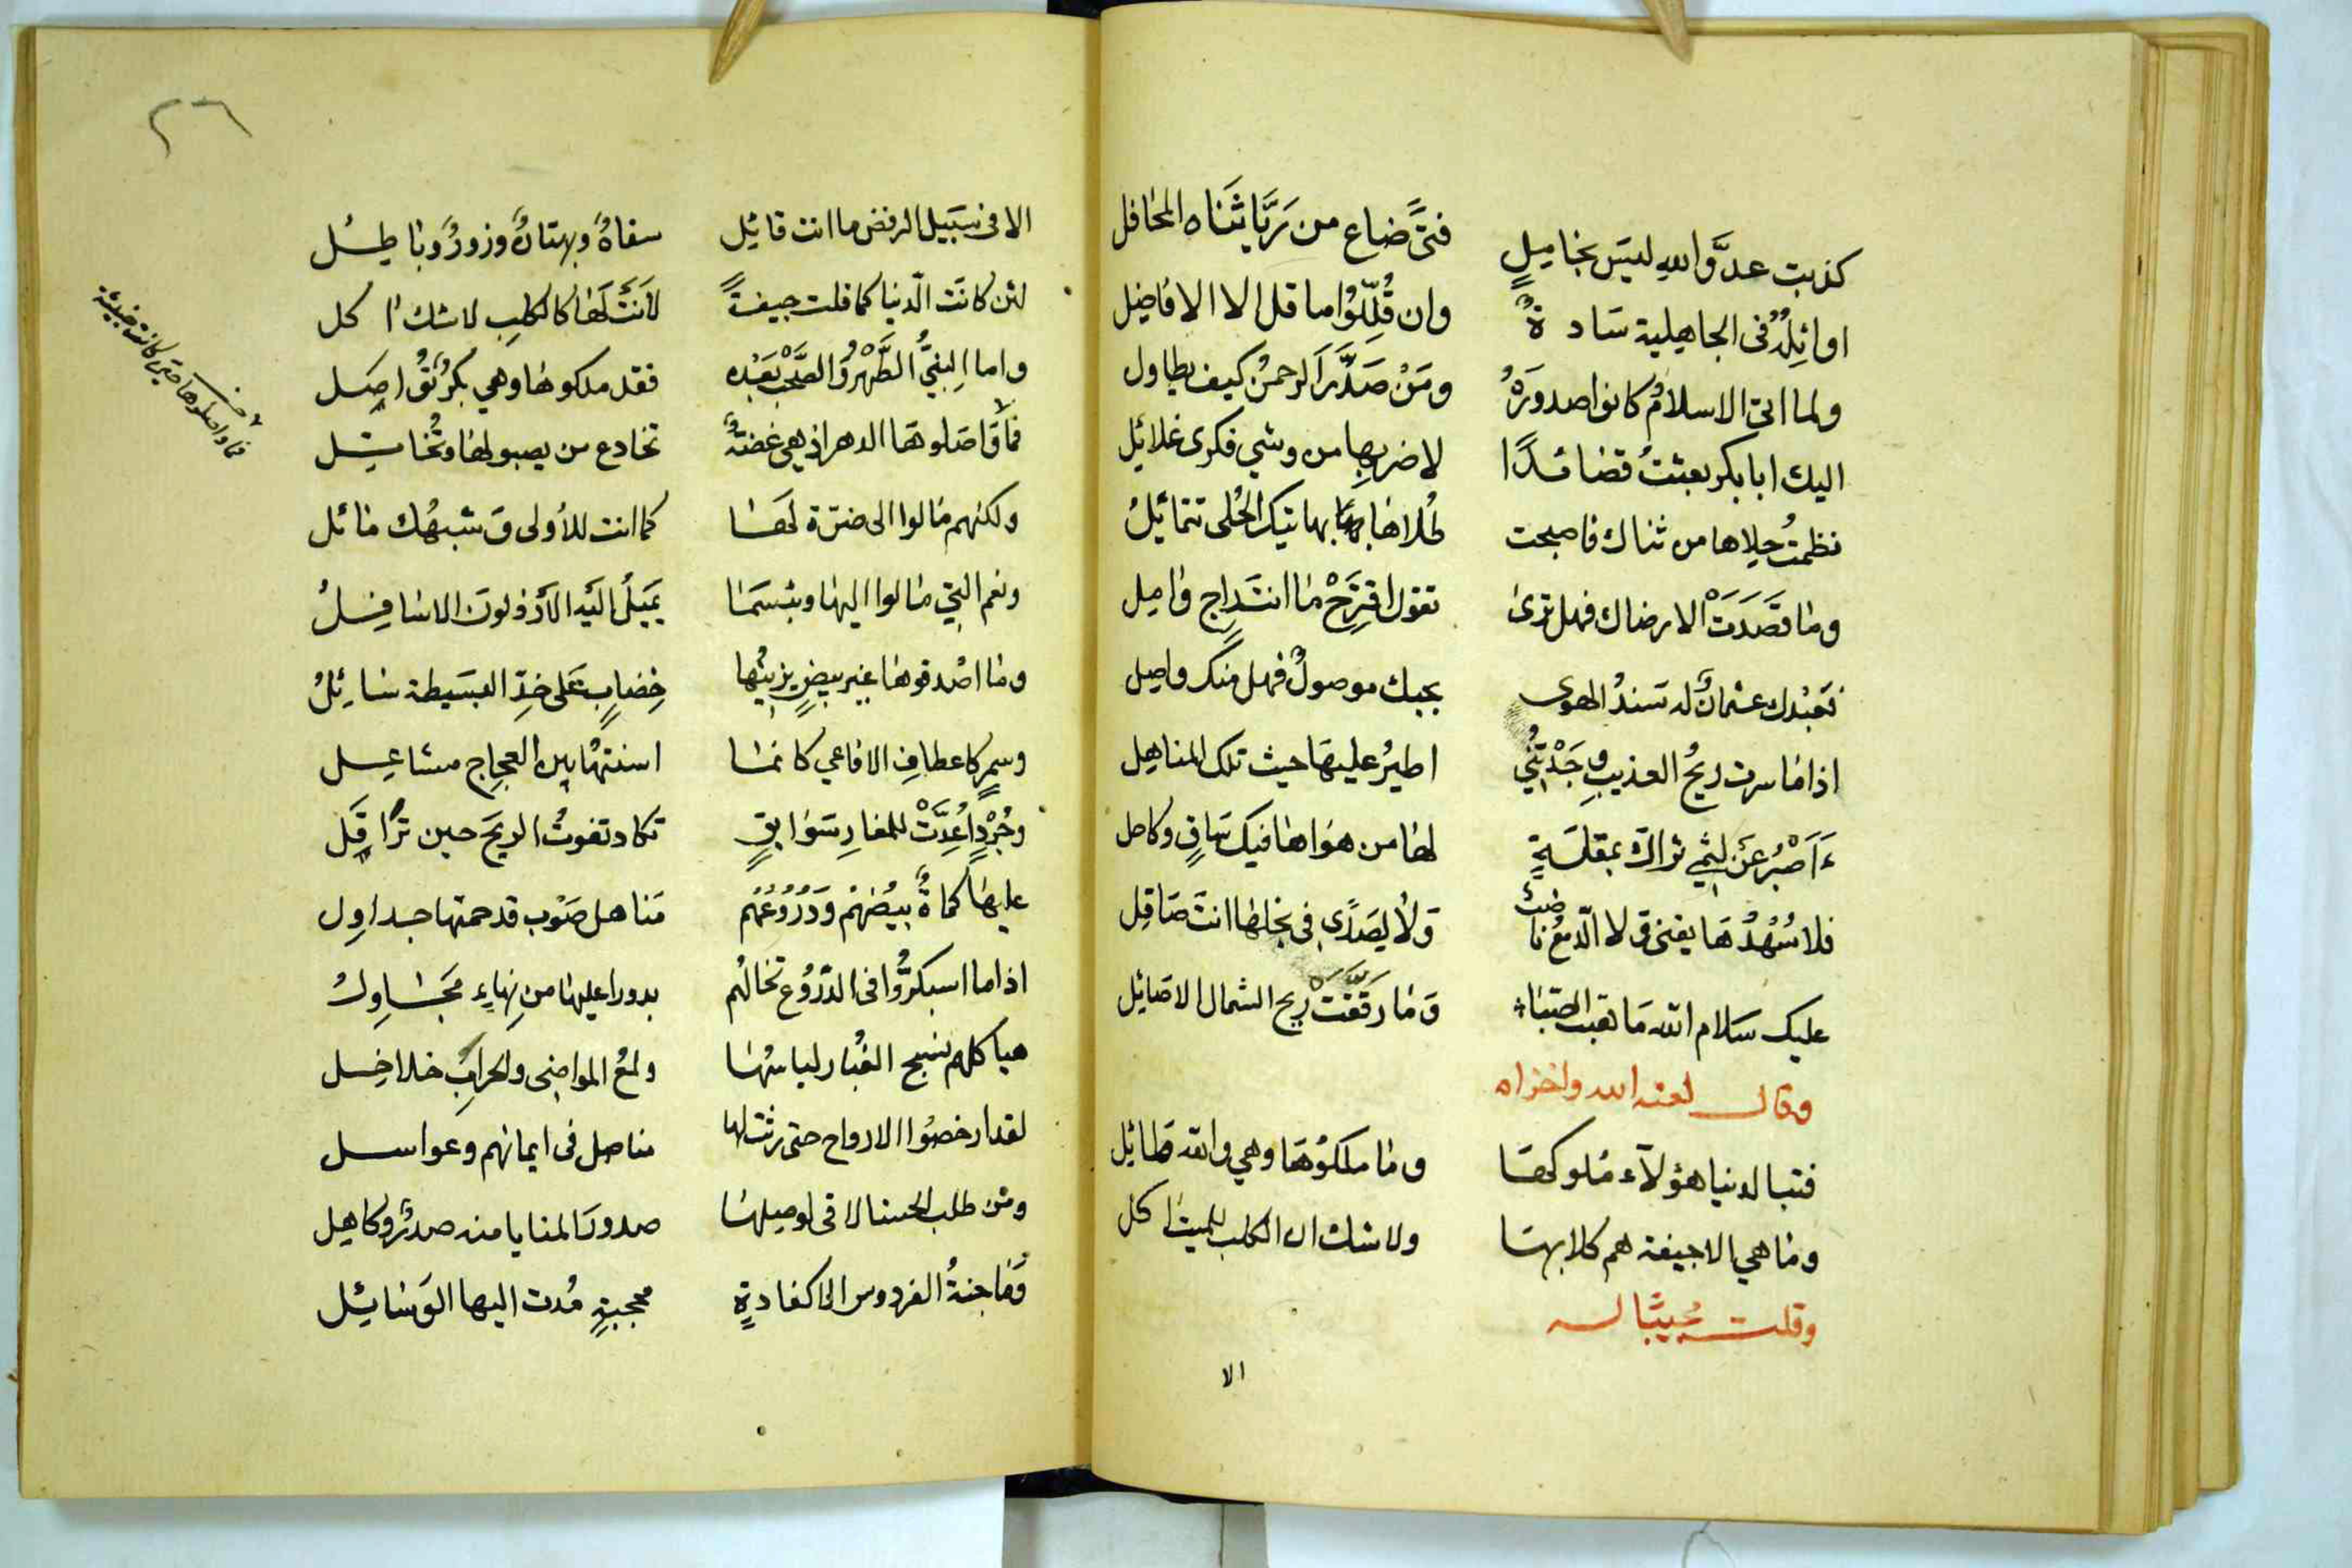 كذبت عدوَّ اللهِ ليسَ بخاميلٍ فتىً ضاع من رَيَّا ثَنَاه المحَافل
اوائِلُهُ فى الجاهيلية سَادةٌ وان قُلِّلُوا ما قل الا الافاضِل
ولما اتى الاسلامُ كانوا صدورَهُ ومَنْ صَدَّرَ الرحمنُ كيف يطاول
اليك ابا بكر بعثتُ قضائدًا لاضربها من وشي فكرى غلائِل
نظمتُ حلاها من ثناك فاصبحت بهاتيك الحُلى تتمائلُ
وما قَصَدَتْ الا رضاك فهل ترىٰ تقول اقتَرِحْ ما انتَ راجٍ وامِل
فعَبْدك عثمانٌ له سَندُ الهوى بحبك موصولٌ فهل منك واصِل
اذا ما سرت ريحُ العذيبِ وجَدْتُنِي اطيرُ عليهَا حيث تلك المناهِل
ءَاَصْبُر عَنْ لثمِي ثراك بمقلَةٍ لها من هوَاها فيك سَافٍ وكاحل
فلا سُهْدُهَا يفنى وَلا الدّمعُ ناضبٌ وَلا يصَدَى فى نجلها انتَ صَاقِل
عليك سَلام الله مَا هبت الصَّبَاء وَمَا رَقَّقَتْ ريح الشمال الاصَائِل
وقال لعنه الله واخزاه
فتبا لدنيا هؤلآء مُلوكهَا وما ملكوُهَا وهي والله طائِل
وما هي الا جيفة هم كلابهَا ولا شك ان الكلب للميت اكل
وقلت مُجيبًا له
الا
٢٦
الا فى سَبيل الرفض ما انت قائِل سفاهٌ وبهتانٌ وزورٌ وباطِل
لئن كانَت الدّنيا كما قلت جيفةً لاَنتَ لَهَا كالكلبِ لا شك اكل
واما النبيُّ الطُّهْرُ والصَّحْبُ بَعْدَه فقد ملكوها وهي بكرٌ
فمَا وَاصَلوهَا الدهر اذ هي غضةٌ تخادع من يصبو لهَا وتُخاتِل
ولكنهم مَالوا الى ضرّة لهَا كما انت للأولى وَشبهُك مائل
ونعم التي مَالوا اليها وبئسمَا يَميلُ اليَه الأرذلونَ الاسَافِلُ
وما اصْدقوهَا غير بيضٍ يزينُها خِضابٍ عَلى خدِّ البسَيطة سَائِلُ
وسمرٍ كاعطافِ الافاعي كانما اسنتهُا بين العجاجِ مشاعِل
وجُرْدٍ اُعِدَّتْ للمغارِ سَوَابقٍ تكاد تفوتُ الريحَ حين تُراقِل
عليها كماةٌ بيْضُهُمْ وَدُرُوْعُهُم مَناهل صَوْب قد حمتها جداوِل
اذا ما اسبكرُّوا فى الدّرُوْع تخالُهم بدورا عليها من نِهاءٍ
هياكلهم نسج الغُبار لباسُها ولمعُ المواضى والحرابُ خلاخِل
لقد ارخصُوا الارواح حتى رثت لها مناصل فى ايمانهم وعواسل
ومَن طلب الحسنا لاقى لوصيلهَا صدورَ المنايا منه صدرٌ وكاهِل
فمَا جنةُ الفردوس الا كغادةٍ محجبةٍ مُدت اليها الوَسَائِل
فما واصلوها حتى كانت